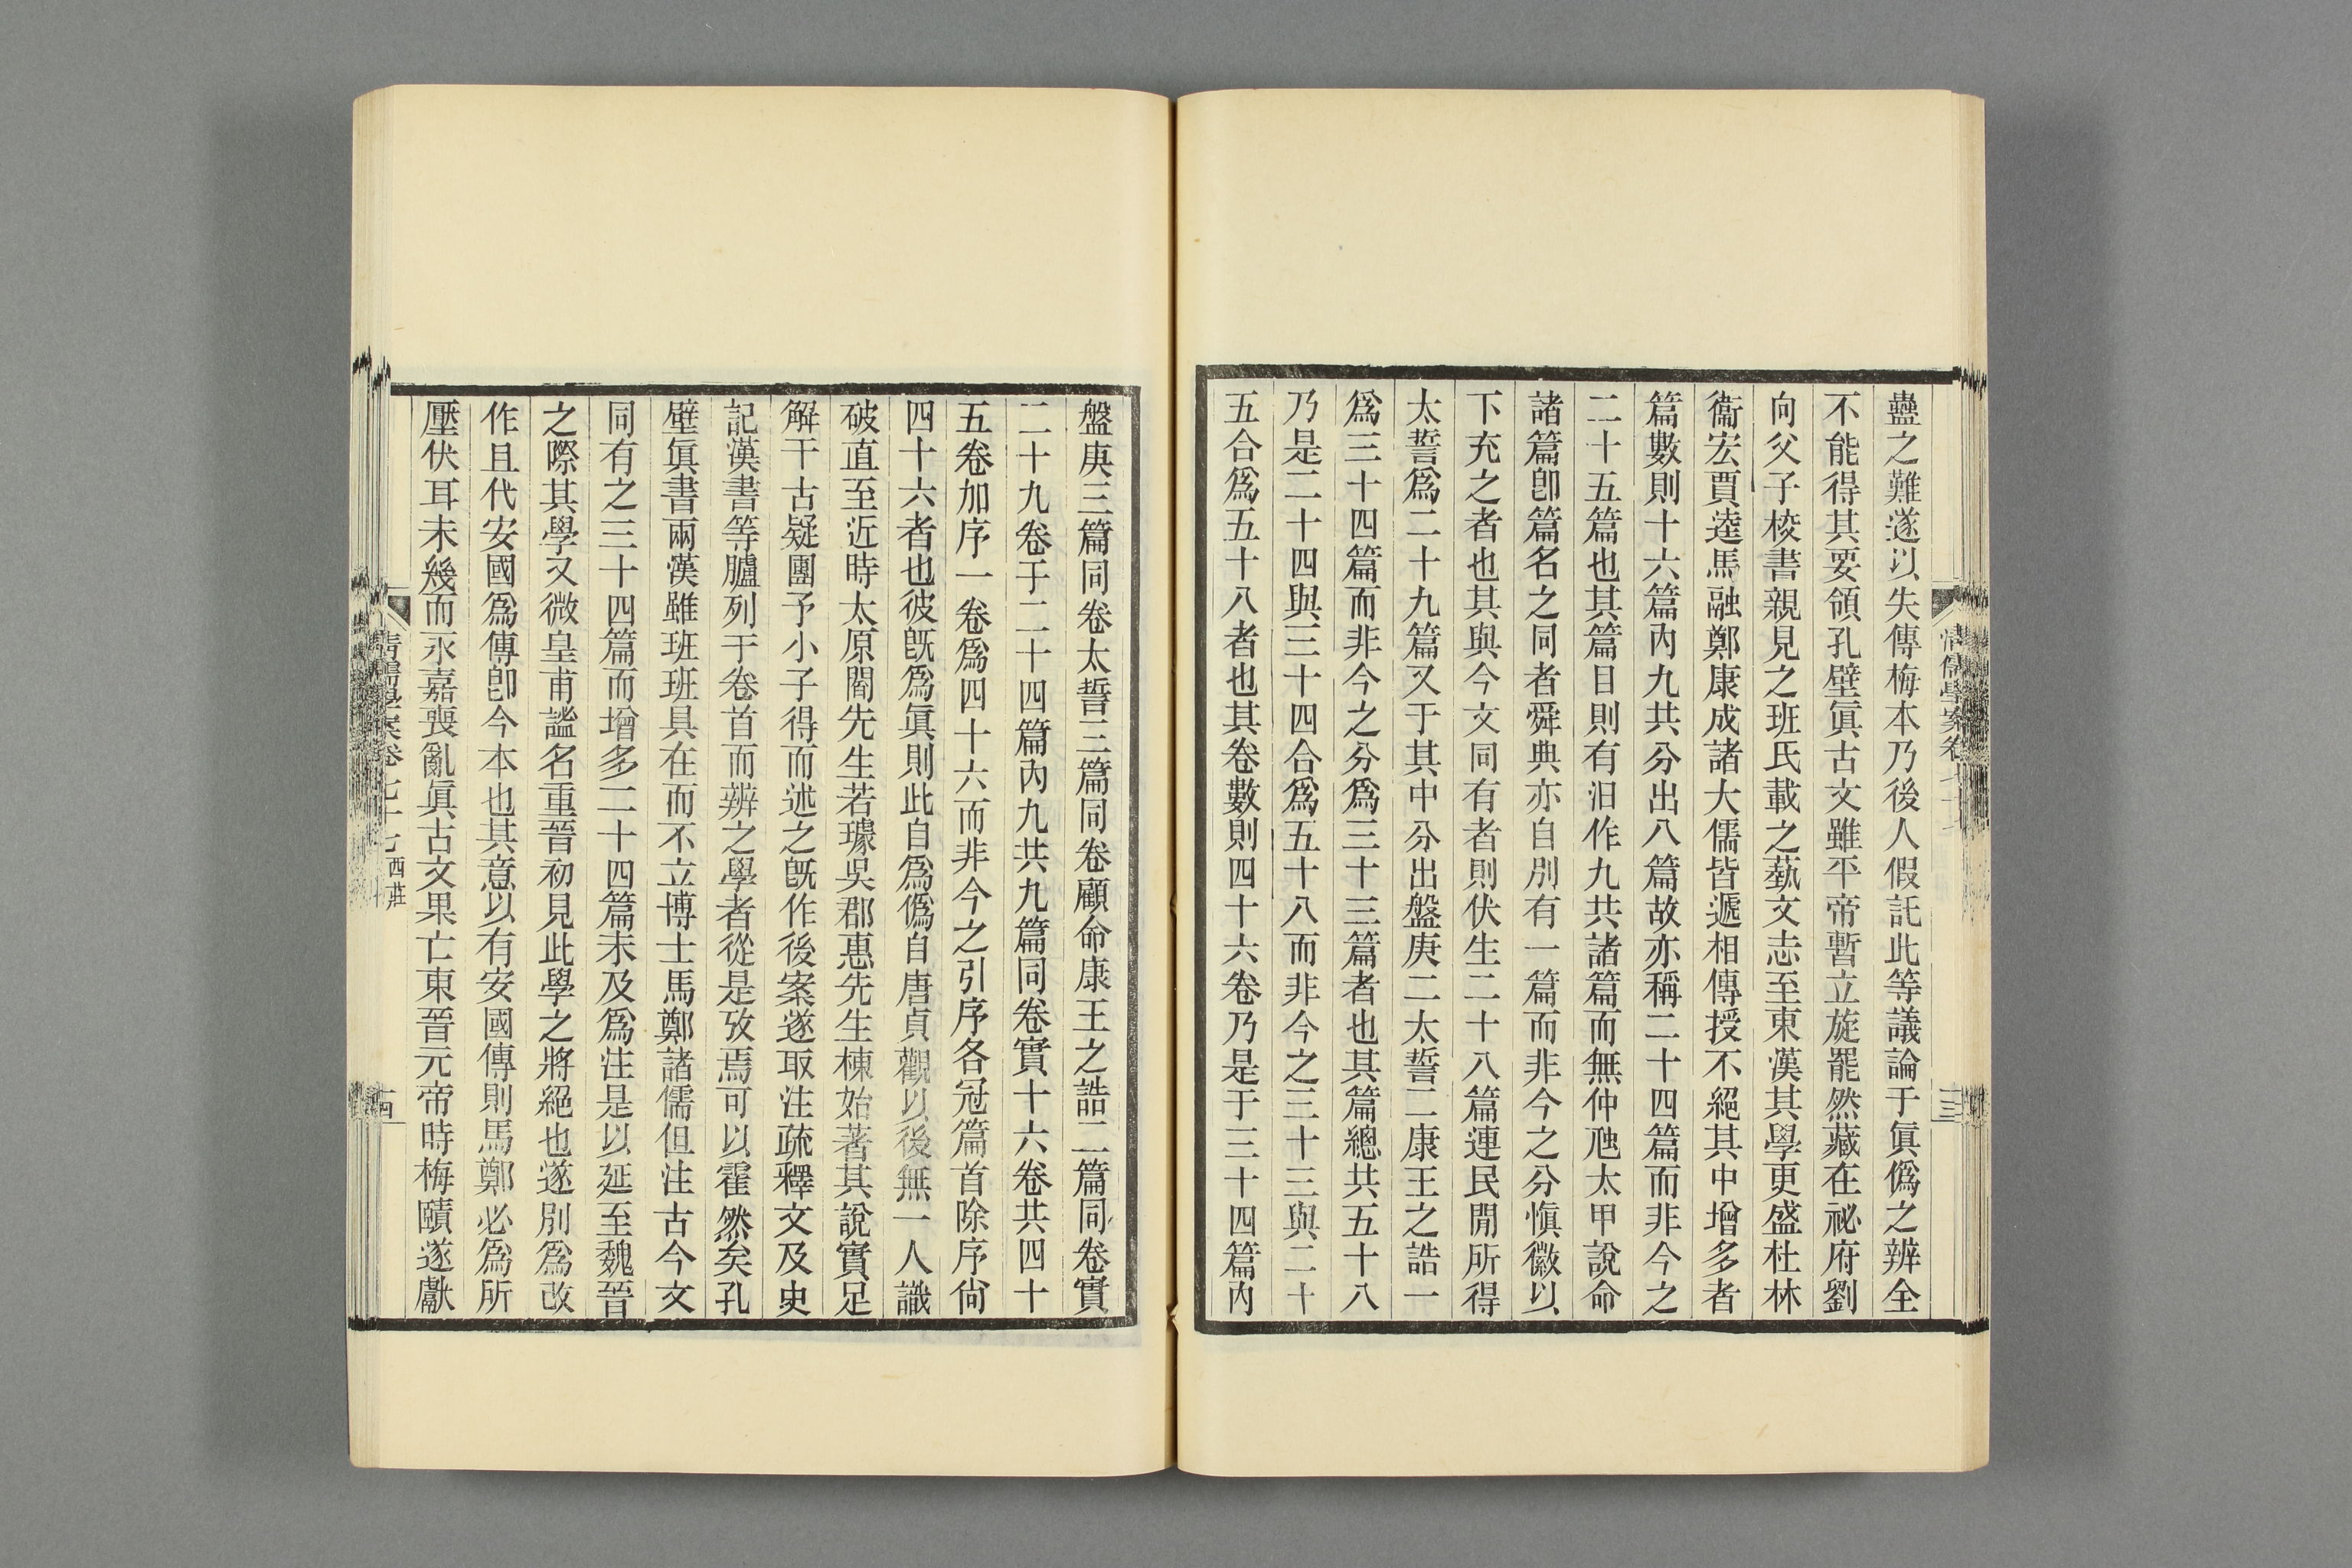 蠱之難遂以失傳梅本乃後人假託此等議論于眞僞之辨全
不能得其要領孔壁眞古文雖平帝暫立旋罷然藏在祕府劉
向父子校書親見之班氏載之藝文志至東漢其學更盛杜林
衞宏賈逵馬融鄭康成諸大儒皆遞相傳授不絕其中增多者
篇數則十六篇內九共分出八篇故亦稱二十四篇而非今之
二十五篇也其篇目則有汨作九共諸篇而無仲虺太甲說命
諸篇卽篇名之同者舜典亦自別有一篇而非今之分愼徽以
下充之者也其與今文同有者則伏生二十八篇連民閒所得
太誓爲二十九篇又于其中分出盤庚二太誓二康王之誥一
爲三十四篇而非今之分爲三十三篇者也其篇總共五十八
乃是二十四與三十四合爲五十八而非今之三十三與二十
五合爲五十八者也其卷數則四十六卷乃是于三十四篇內
清儒學案卷七十七
三
盤庚三篇同卷太誓三篇同卷顧命康王之誥二篇同卷實
二十九卷于二十四篇內九共九篇同卷實十六卷共四十
五卷加序一卷爲四十六而非今之引序各冠篇首除序尙
四十六者也彼旣爲眞則此自爲僞自唐貞觀以後無一人識
破直至近時太原閻先生若璩吳郡惠先生棟始著其說實足
解千古疑團予小子得而述之旣作後案遂取注疏釋文及史
記漢書等臚列于卷首而辨之學者從是攷焉可以霍然矣孔
壁眞書兩漢雖班班具在而不立博士馬鄭諸儒但注古今文
同有之三十四篇而增多二十四篇未及爲注是以延至魏晉
之際其學又微皇甫謐名重晉初見此學之將絕也遂別爲改
作且代安國爲傳卽今本也其意以有安國傳則馬鄭必爲所
壓伏耳未幾而永嘉喪亂眞古文果亡東晉元帝時梅賾遂獻
清儒學案卷七十七 西莊
四